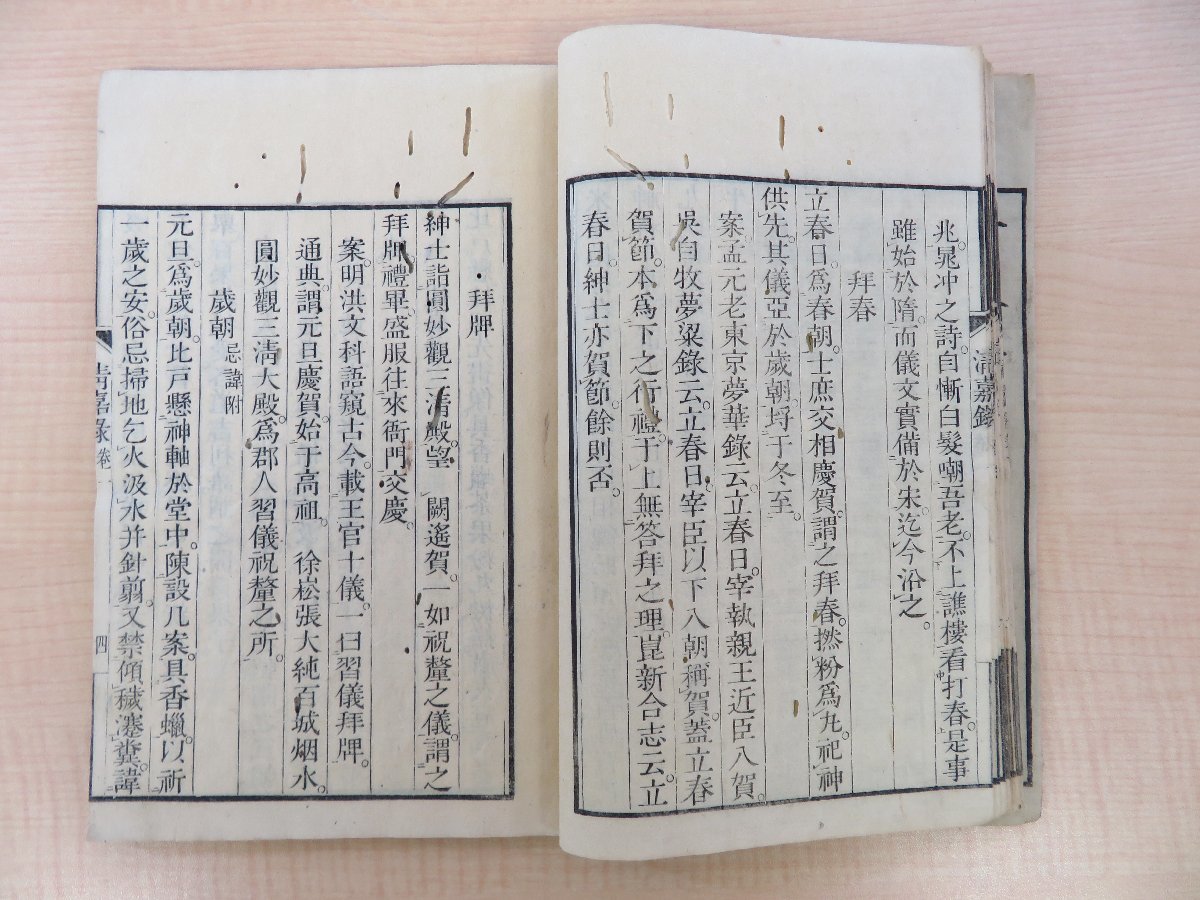 兆晁冲之詩。自慚白髮嘲吾老。不上譙樓看打春。是事
雖始於隋。而儀文實備於宋。迄今沿之。
拜春
立春日。爲春朝。士庶交相慶賀。謂之拜春。撚粉爲丸。祀神
供先。其儀亞於歲朝。埒于冬至。
案孟元老東京夢華錄云。立春日。宰執親王近臣入賀。
吳自牧夢粱錄云。立春日。宰臣以下入朝稱賀。蓋立春
賀節。本爲下之行禮于上。無答拜之理。崑新合志云。立
春日。紳士亦賀節。餘則否。
清嘉錄
拜牌
紳士詣圓妙觀三清殿。望 闕遙賀。一如祝釐之儀。謂之
拜牌。禮畢。盛服往來衙門交慶。
案明洪文科語窺古今。載王官十儀。一曰習儀拜牌。
通典。謂元旦慶賀。始于高祖。 徐崧張大純百城烟水。
圓妙觀三清大殿。爲郡人習儀祝釐之所。
歲朝 忌諱附
元旦。爲歲朝。比戶懸神軸於堂中。陳設几案。具香蠟。以祈
一歲之安。俗忌掃地乞火汲水并針剪。又禁傾穢瀽糞。諱
清嘉錄 卷一 四